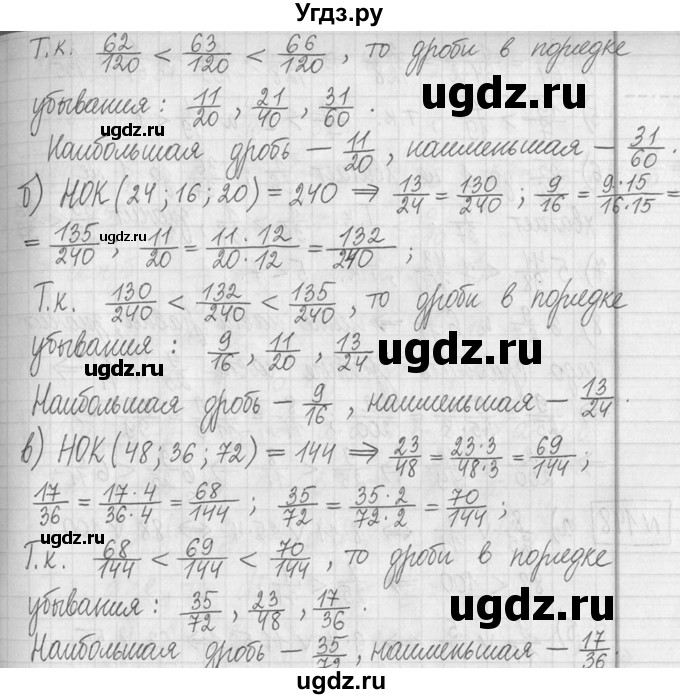 Угдз.ру
Т.к. 62/120 < 63/120 < 66/120, то дроби в порядке
ugdz.ru
убывания: 11/20, 21/40, 31/60.
ugdz.ru
ugdz.ru
Наибольшая дробь – 11/20, наименьшая – 31/60.
б) НОК(24; 16; 20) = 240 ⇒ 13/24 = 130/240; 9/16 = 9·15/16·15 =
= 135/240, 11/20 = 11·12/20·12 = 132/240;
ugdz.ru
Т.к. 130/240 < 132/240 < 135/240, то дроби в порядке
убывания: 9/16, 11/20, 13/24
ugdz.ru
ugdz.ru
Наибольшая дробь – 9/16, наименьшая – 13/24.
в) НОК(48; 36; 72) = 144 ⇒ 23/48 = 23·3/48·3 = 69/144;
17/36 = 17·4/36·4 = 68/144; 35/72 = 35·2/72·2 = 70/144;
ugdz.ru
Т.к. 68/144 < 69/144 < 70/144, то дроби в порядке
убывания: 35/72, 23/48, 17/36.
ugdz.ru
ugdz.ru
Наибольшая дробь – 35/72, наименьшая – 17/36.
ugdz.ru